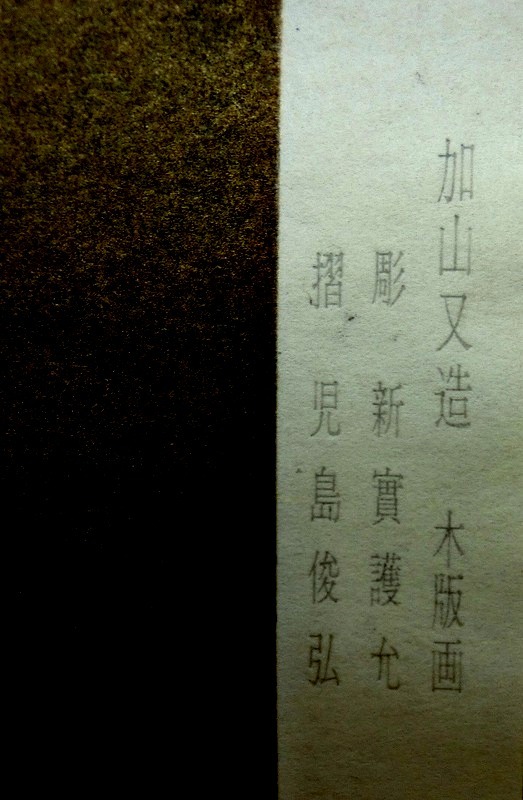 加山又造 木版画
彫 新實護允
摺 児島俊弘